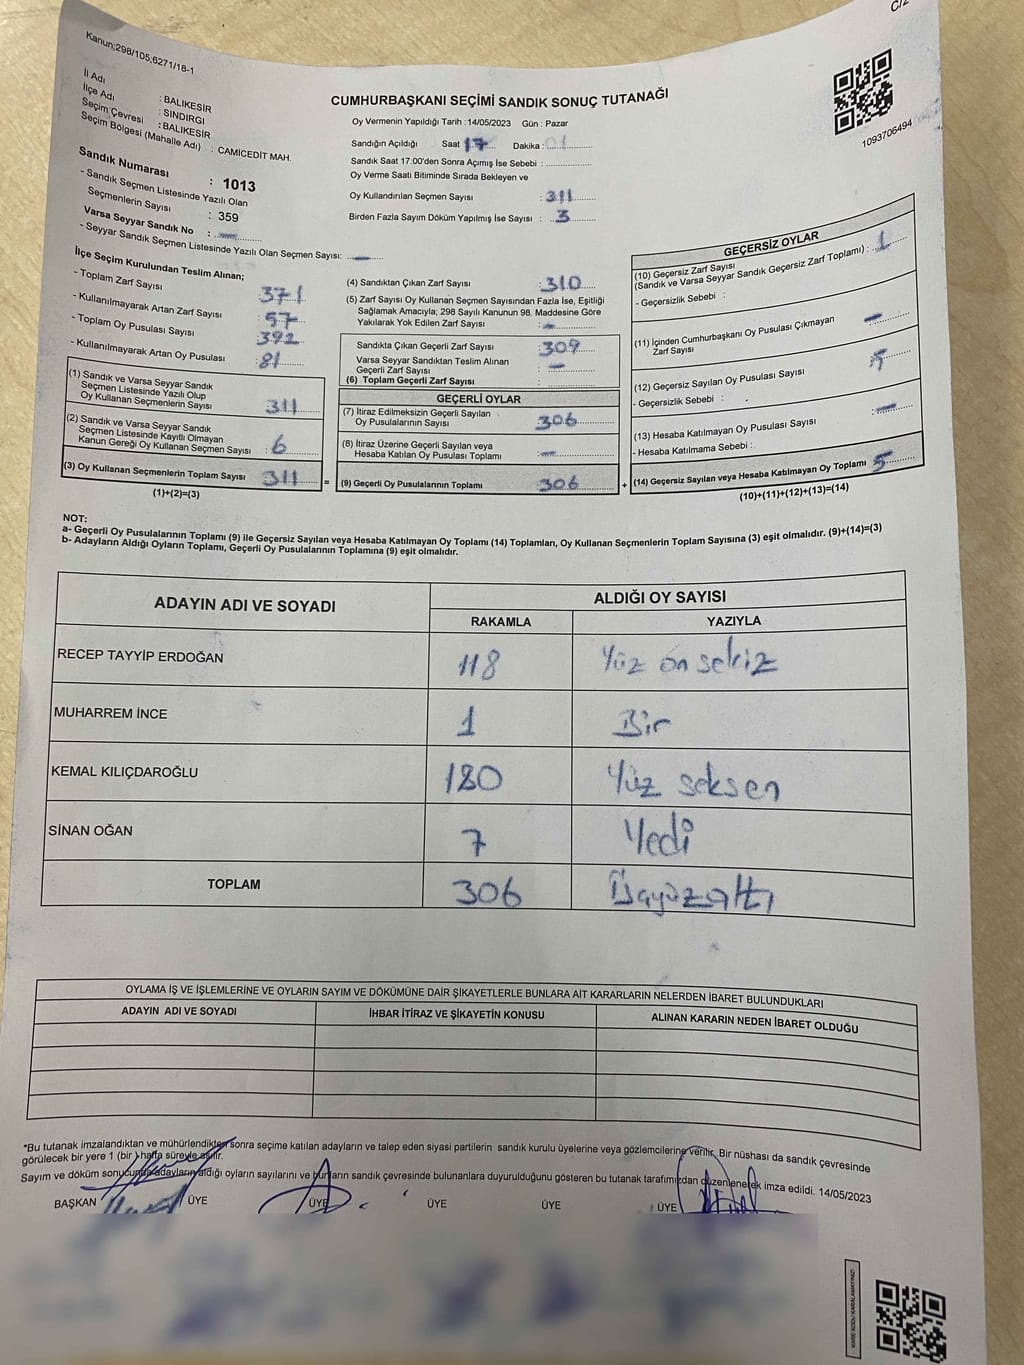 Kanun;298/105,6271/18-1
C/2
İl Adı : BALIKESİR
İlçe Adı : SINDIRGI
Seçim Çevresi : BALIKESİR
Seçim Bölgesi (Mahalle Adı) : CAMİCEDİT MAH.
Sandık Numarası : 1013
- Sandık Seçmen Listesinde Yazılı Olan
Seçmenlerin Sayısı : 359
Varsa Seyyar Sandık No : -
- Seyyar Sandık Seçmen Listesinde Yazılı Olan Seçmen Sayısı: -
CUMHURBAŞKANI SEÇİMİ SANDIK SONUÇ TUTANAĞI
Oy Vermenin Yapıldığı Tarih :14/05/2023 Gün : Pazar
Sandığın Açıldığı Saat 17 Dakika : 01
Sandık Saat 17:00'den Sonra Açımış İse Sebebi :
Oy Verme Saati Bitiminde Sırada Bekleyen ve
Oy Kullandırılan Seçmen Sayısı : 311
Birden Fazla Sayım Döküm Yapılmış İse Sayısı : 3
1093706494
İlçe Seçim Kurulundan Teslim Alınan;
- Toplam Zarf Sayısı 371
- Kullanılmayarak Artan Zarf Sayısı : 57
- Toplam Oy Pusulası Sayısı 392
- Kullanılmayarak Artan Oy Pusulası : 81
(1) Sandık ve Varsa Seyyar Sandık
Seçmen Listesinde Yazılı Olup
Oy Kullanan Seçmenlerin Sayısı : 311
(2) Sandık ve Varsa Seyyar Sandık
Seçmen Listesinde Kayıtlı Olmayan
Kanun Gereği Oy Kullanan Seçmen Sayısı : 6
(3) Oy Kullanan Seçmenlerin Toplam Sayısı 311
(1)+(2)=(3)
(4) Sandıktan Çıkan Zarf Sayısı : 310
(5) Zarf Sayısı Oy Kullanan Seçmen Sayısından Fazla İse, Eşitliği
Sağlamak Amacıyla; 298 Sayılı Kanunun 98. Maddesine Göre
Yakılarak Yok Edilen Zarf Sayısı : -
Sandıkta Çıkan Geçerli Zarf Sayısı : 309
Varsa Seyyar Sandıktan Teslim Alınan
Geçerli Zarf Sayısı : -
(6) Toplam Geçerli Zarf Sayısı :
GEÇERLİ OYLAR
(7) İtiraz Edilmeksizin Geçerli Sayılan
Oy Pusulalarının Sayısı : 306
(8) İtiraz Üzerine Geçerli Sayılan veya
Hesaba Katılan Oy Pusulası Toplamı : -
(9) Geçerli Oy Pusulalarının Toplamı : 306
=
+
GEÇERSİZ OYLAR
(10) Geçersiz Zarf Sayısı
(Sandık ve Varsa Seyyar Sandık Geçersiz Zarf Toplamı) : 1
- Geçersizlik Sebebi :
(11) İçinden Cumhurbaşkanı Oy Pusulası Çıkmayan
Zarf Sayısı : -
(12) Geçersiz Sayılan Oy Pusulası Sayısı : 5
- Geçersizlik Sebebi :
(13) Hesaba Katılmayan Oy Pusulası Sayısı : -
- Hesaba Katılmama Sebebi :
(14) Geçersiz Sayılan veya Hesaba Katılmayan Oy Toplamı : 5
(10)+(11)+(12)+(13)=(14)
NOT:
a- Geçerli Oy Pusulalarının Toplamı (9) ile Geçersiz Sayılan veya Hesaba Katılmayan Oy Toplamı (14) Toplamları, Oy Kullanan Seçmenlerin Toplam Sayısına (3) eşit olmalıdır. (9)+(14)=(3)
b- Adayların Aldığı Oyların Toplamı, Geçerli Oy Pusulalarının Toplamına (9) eşit olmalıdır.
ADAYIN ADI VE SOYADI ALDIĞI OY SAYISI
RAKAMLA YAZIYLA
RECEP TAYYİP ERDOĞAN 118 Yüz on sekiz
MUHARREM İNCE 1 Bir
KEMAL KILIÇDAROĞLU 180 Yüz seksen
SİNAN OĞAN 7 Yedi
TOPLAM 306
OYLAMA İŞ VE İŞLEMLERİNE VE OYLARIN SAYIM VE DÖKÜMÜNE DAİR ŞİKAYETLERLE BUNLARA AİT KARARLARIN NELERDEN İBARET BULUNDUKLARI
ADAYIN ADI VE SOYADI İHBAR İTİRAZ VE ŞİKAYETİN KONUSU ALINAN KARARIN NEDEN İBARET OLDUĞU
*Bu tutanak imzalandıktan ve mühürlendikten sonra seçime katılan adayların ve talep eden siyasi partilerin sandık kurulu üyelerine veya gözlemcilerine verilir. Bir nüshası da sandık çevresinde
görülecek bir yere 1 (bir) hafta süreyle asılır.
Sayım ve döküm sonucunda adayların aldığı oyların sayılarını ve bunların sandık çevresinde bulunanlara duyurulduğunu gösteren bu tutanak tarafımızdan düzenlenerek imza edildi. 14/05/2023
BAŞKAN ÜYE ÜYE ÜYE ÜYE ÜYE
KARE KODU KARALAMAYINIZ!